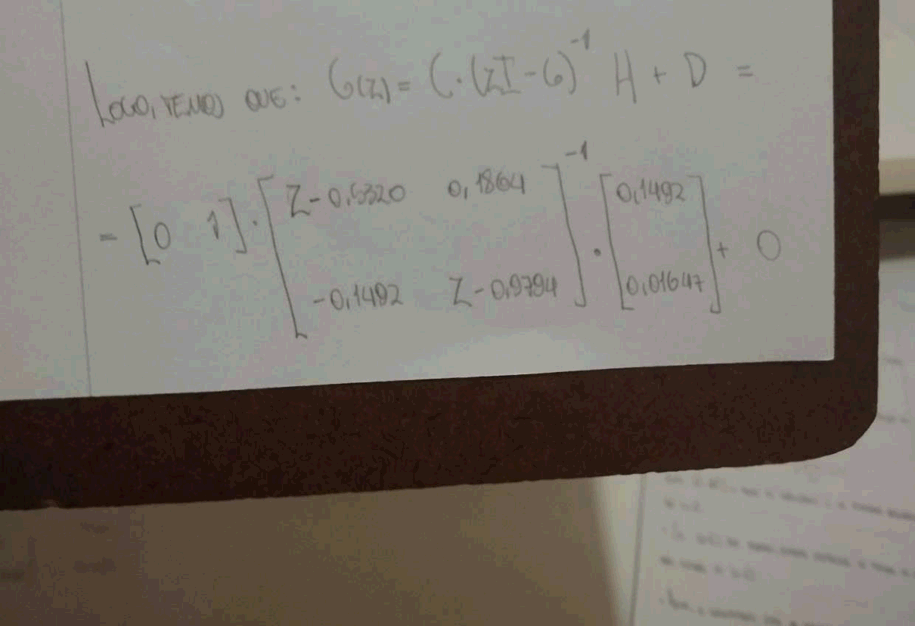 LOGO, TEMOS QUE: G(Z) = C·(ZI - G)^-1 H + D =
= [0 1] · [Z-0,5320 0,1864]^-1 · [0,1492] + 0
[-0,1492 Z-0,9794] [0,01647]